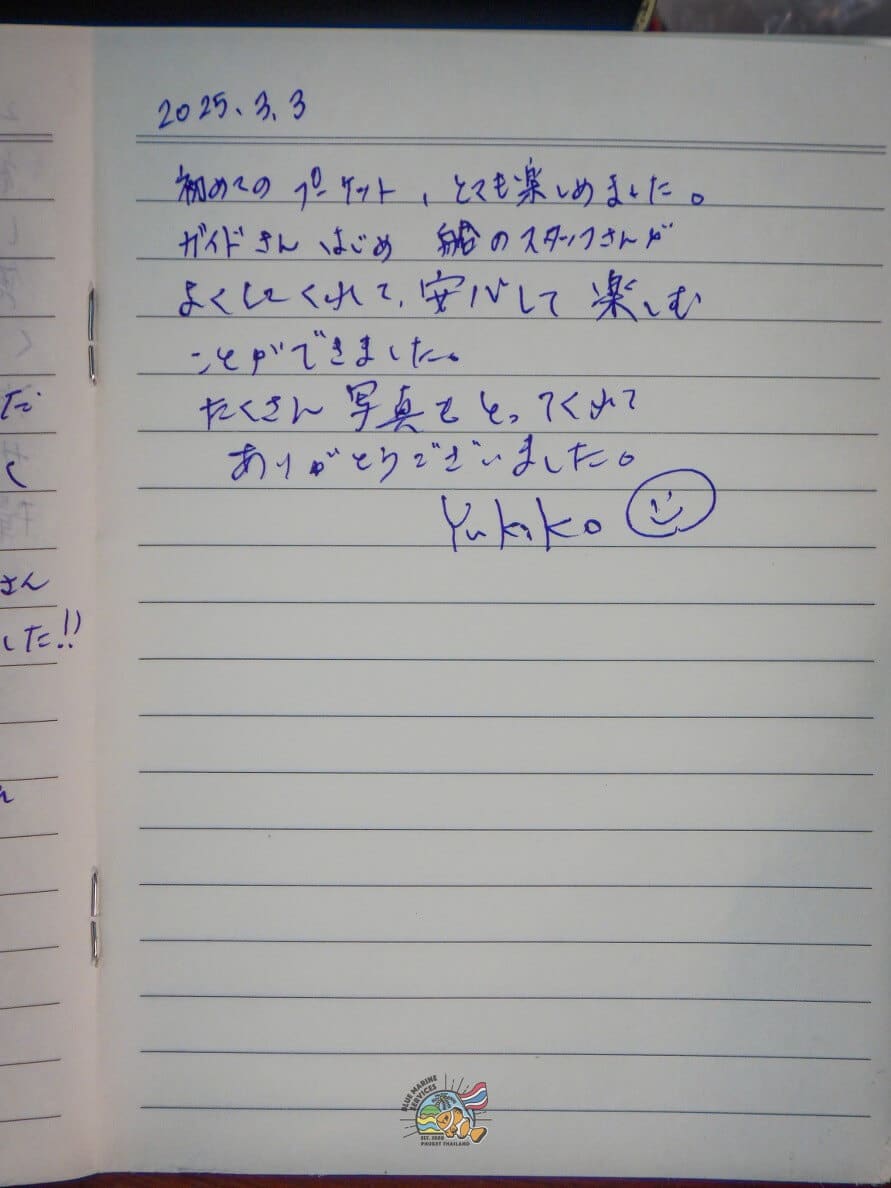 2025.3.3
初めてのプーケット、とても楽しめました。
ガイドさんはじめ 船のスタッフさんが
よくしてくれて、安心して楽しむ
ことができました。
たくさん写真もとってくれて
ありがとうございました。
Yukiko
だ
く
さん
した!!
ん
BLUE MARINE SERVICES
EST. 2020
PHUKET THAILAND